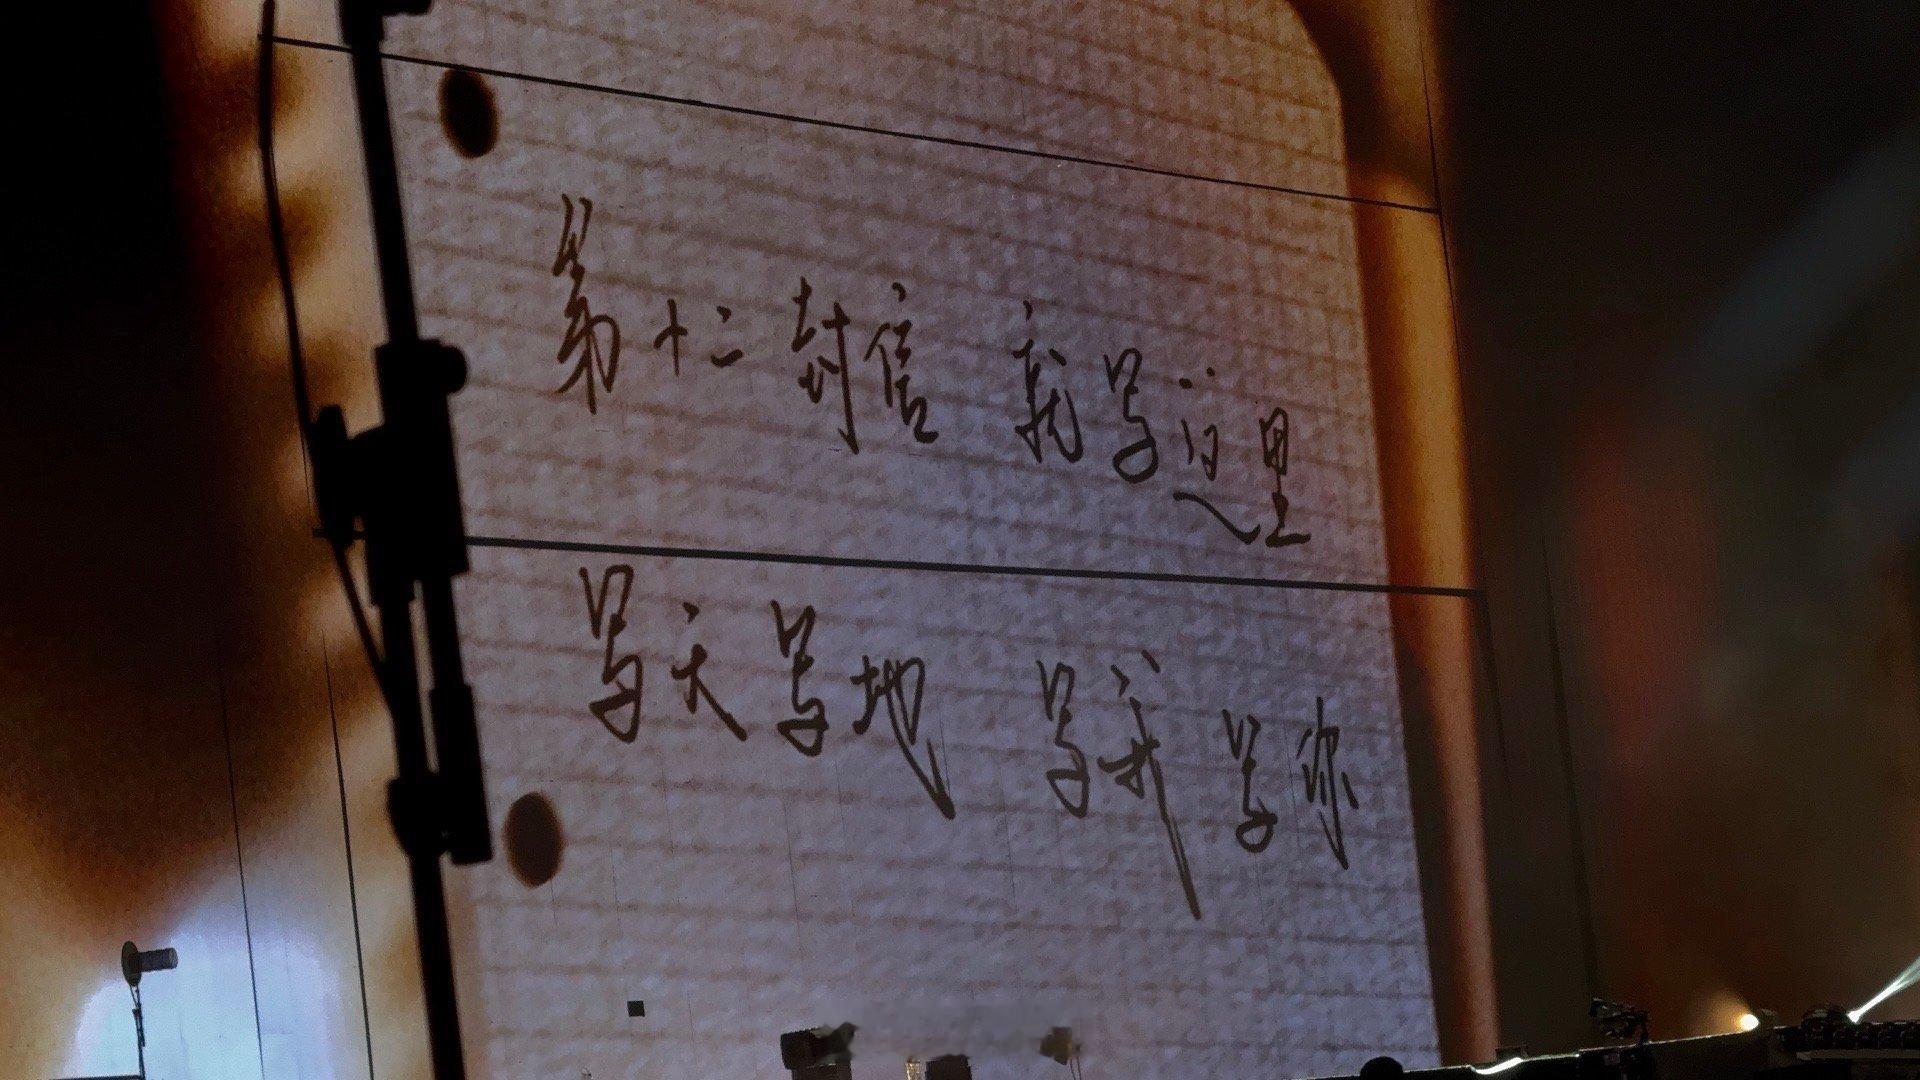 第十二封信 就写这里
写天写地 写我写你